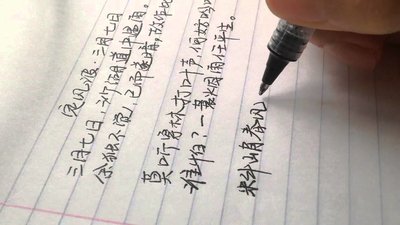 定风波·三月七日
三月七日，沙湖道中遇雨。
余独不觉，已而遂晴，故作此
莫听穿林打叶声，何妨吟
谁怕？一蓑烟雨任平生。
料峭春风